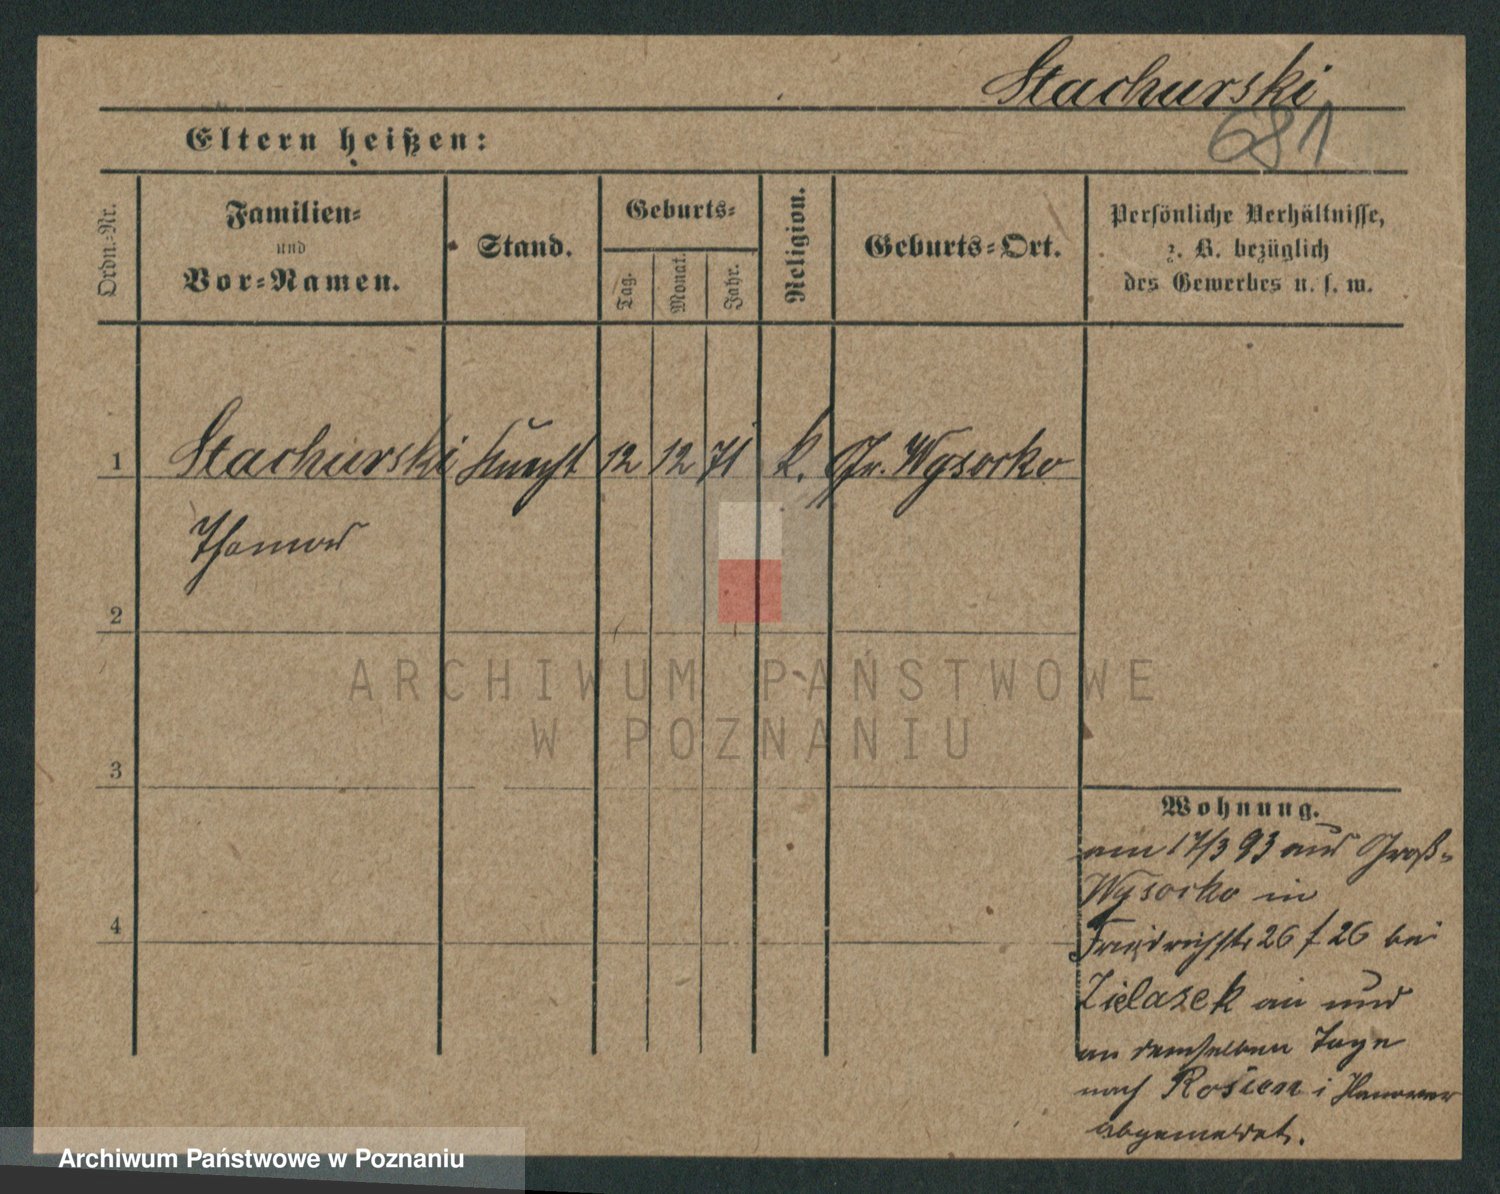 Stachurski
681
Eltern heißen:
Ordn.=Nr.
Familien=
und
Vor=Namen.
Stand.
Geburts=
Tag.
Monat.
Jahr.
Religion.
Geburts=Ort.
Persönliche Verhältnisse,
z. B. bezüglich
des Gewerbes u. s. w.
1 Stachurski Knecht 12 12 71 k. Gr. Wysocko
Thomas
2
ARCHIWUM PAŃSTWOWE
W POZNANIU
3
Wohnung.
am 17/3 93 aus Groß=
Wysocko in
Friedrichstr 26 / 26 bei
Zielazek an und
an demselben Tage
nach Rosien i Hanover
abgemeldet.
4
Archiwum Państwowe w Poznaniu